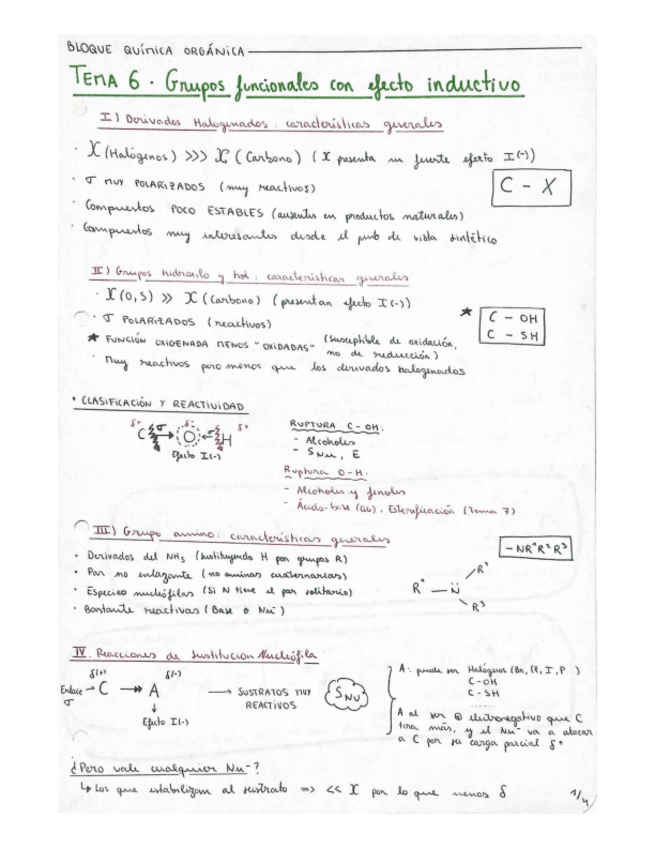 BLOQUE QUÍMICA ORGÁNICA
TEMA 6 · Grupos funcionales con efecto inductivo
I) Derivados Halogenados: características generales
· X (Halógenos) >>> X (Carbono) (X presenta un fuerte efecto I(-))
· σ MUY POLARIZADOS (muy reactivos)
C - X
· Compuestos POCO ESTABLES (ausentes en productos naturales)
· Compuestos muy interesantes desde el punto de vista sintético
II) Grupos hidroxilo y tiol: características generales
· X (O, S) >> X (Carbono) (presentan efecto I(-))
· σ POLARIZADOS (reactivos)
★ C - OH
C - SH
★ FUNCIÓN OXIGENADA MENOS "OXIDADAS" (susceptible de oxidación,
no de reducción)
· Muy reactivos pero menos que los derivados halogenados
· CLASIFICACIÓN Y REACTIVIDAD
δ+ δ- δ+
C σ O H
Efecto I(-)
RUPTURA C-OH:
- Alcoholes
- SNu, E
Ruptura O-H:
- Alcoholes y fenoles
- Ácido-base (Q6), Esterificación (Tema 7)
III) Grupo amino: características generales
- NR¹R²R³
· Derivados del NH₃ (sustituyendo H por grupos R)
· Par no enlazante (no aminas cuaternarias)
· Especies nucleófilas (Si N tiene el par solitario)
· Bastante reactivas (Base o Nu⁻)
R¹ - N̈ R² R³
IV. Reacciones de Sustitución Nucleófila
δ(+) δ(-)
Enlace σ → C →→ A → SUSTRATOS MUY REACTIVOS
SNu
Efecto I(-)
A: puede ser Halógenos (Br, Cl, I, F..)
C-OH
C-SH
......
A al ser ⊕ electronegativo que C
tira más, y el Nu⁻ va a atacar
a C por su carga parcial δ+
¿Pero vale cualquier Nu⁻?
↳ Los que estabilizan al sustrato => << X por lo que menos δ
1/4